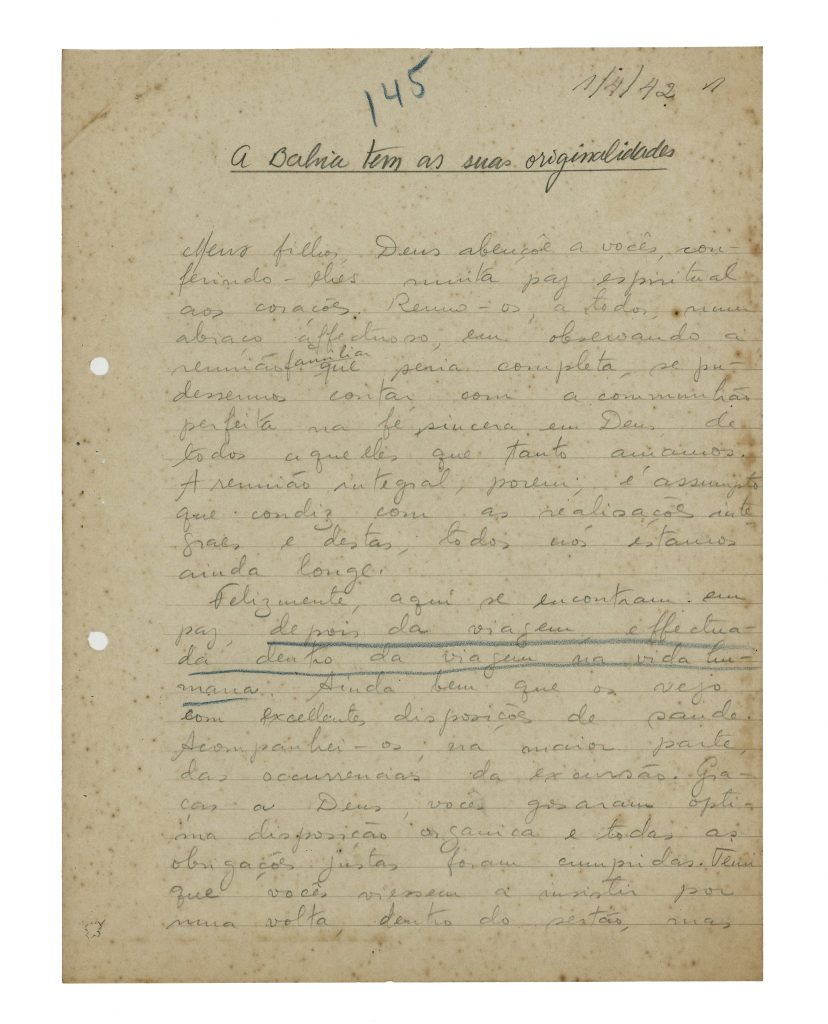 145
1/4/42 1
A Bahia tem as suas originalidades
Meus filhos, Deus abençõe a vocês, con-
ferindo-lhes muita paz espiritual
aos corações. Reuno-os, a todos, num
abraço affectuoso, em observando a
reunião familiar que seria completa, se pu-
dessemos contar com a communhão
perfeita na fé sincera em Deus de
todos aquelles que tanto amamos.
A reunião integral, porem, é assumpto
que condiz com as realisações inte
graes e destas, todos nós estamos
ainda longe.
Felizmente, aqui se encontram em
paz, depois da viagem, effectua-
da dentro da viagem na vida hu-
mana. Ainda bem que os vejo
com excellentes disposições de saude.
Acompanhei-os, na maior parte,
das occurrencias da excursão. Gra-
ças a Deus, vocês gosaram opti-
ma disposição organica e todas as
obrigações justas foram cumpridas. Temi
que vocês viessem a insistir por
uma volta, dentro do sertão, mas